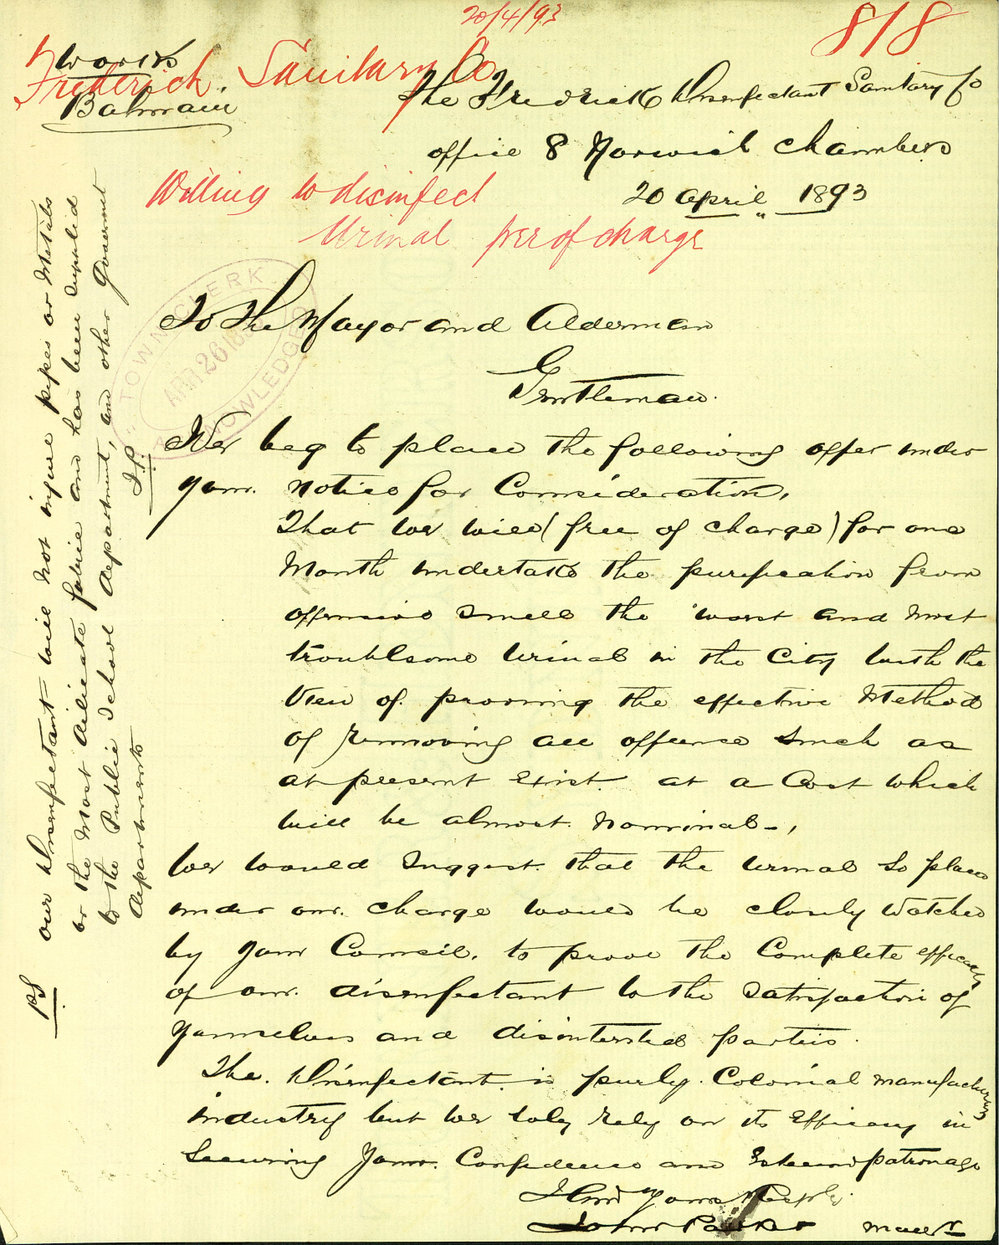 20/4/93
818
Frederick Sanitary Co
Works
Balmain
The Frederick Disinfectant Sanitary Co
office 8 Norwich Chambers
20 april 1893
Willing to disinfect
Urinal free of charge
TOWN CLERK
APR 26 189
ACKNOWLEDGED
To The Mayor and Alderman
Gentleman.
Wee beg to place the following offer under
your. notice for Consideration,
That wee will (free of charge) for one
Month undertake the purification from
offensive smell the worst and most
troublsome Urinal in the City with the
View of. prooving the effective Method
of remooving all offence such as
at present exist. at a Cost which
will be almost. nominal -,
Wee would suggest. that the Urinal so place
under our. charge would be closely watched
by your Council. to prove the Complete efficacy
of our. disenfectant to the satisfaction of
yourselves and disinterested parties.
The. Disenfectant. is purly. Colonial manufacturing
industry but wee soly rely on its Efficacy in
Securing your. Confidence and Esteemd patronage
yours Resply.
John Parker
PS our Disenfectant will not injure pipes or Metals
or the Most delicate fabric and has been supplid
to the Public School department, and other Goverment
departments
J.P.